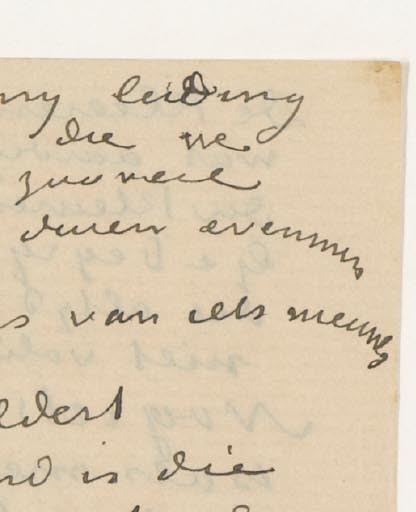 my leiding
die we
zooveel
duren evenmin
s van iets nieuws
eldert
nd is die